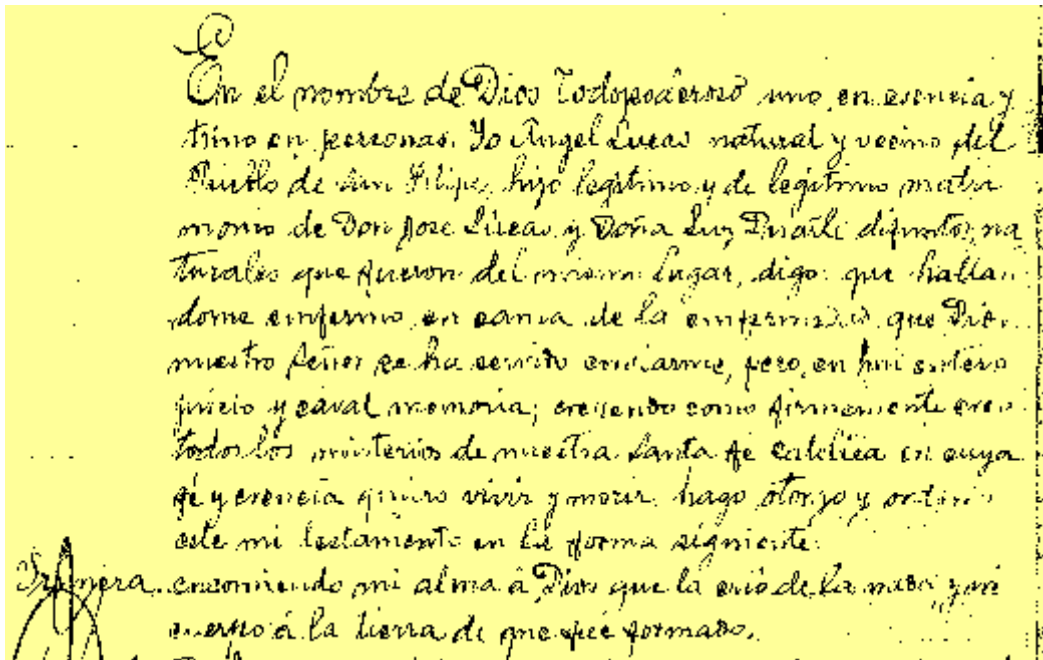 En el nombre de Dios Todopoderoso uno en esencia y
trino en personas. Yo Angel Lucas natural y vecino del
Pueblo de San Filipe, hijo legitimo y de legitimo matri
monio de Don Jose Lucas y Doña Luz Duarte difuntos, na
turales que fueron del mismo lugar, digo: que hallan
dome emfermo en cama de la emfermedad que Dios
nuestro Señor se ha servido enviarme, pero en mi entero
juicio y caval memoria; creyendo como firmemente creo
todos los misterios de nuestra Santa fe catolica en cuya
fé y creencia quiero vivir y morir hago otorgo y ordeno
este mi testamento en la forma siguiente.
Primera. encomiendo mi alma á Dios que la crió de la nada y mi
cuerpo á la tierra de que fué formado.